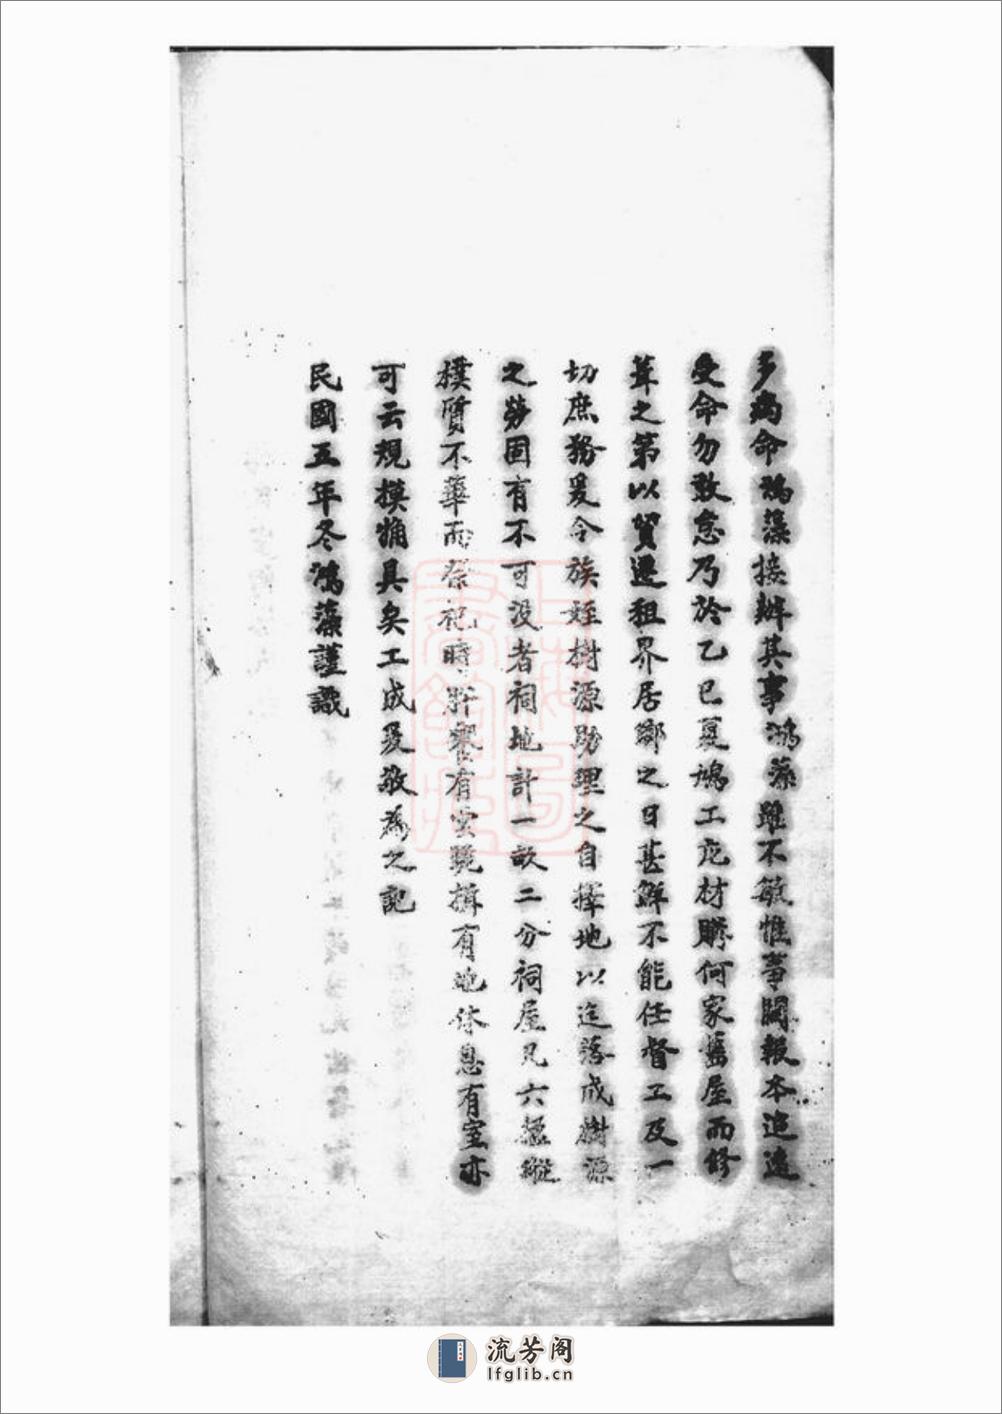 多病命鴻藻接辦其事鴻藻雖不敏惟事關報本追遠
受命勿敢怠乃於乙巳夏鳩工庀材購何家舊屋而修
葺之第以貿遷租界居鄉之日甚鮮不能任督工及一
切庶務爰令族姪樹源助理之自擇地以迄落成樹源
之勞固有不可没者祠地計一畝二分祠屋凡六楹縱
樸質不華而祭祀時肸饗有堂跪揖有地休息有室亦
可云規模觕具矣工成爰敬為之記
民國五年冬鴻藻謹識
上海圖書館藏
流芳阁
lfglib.cn